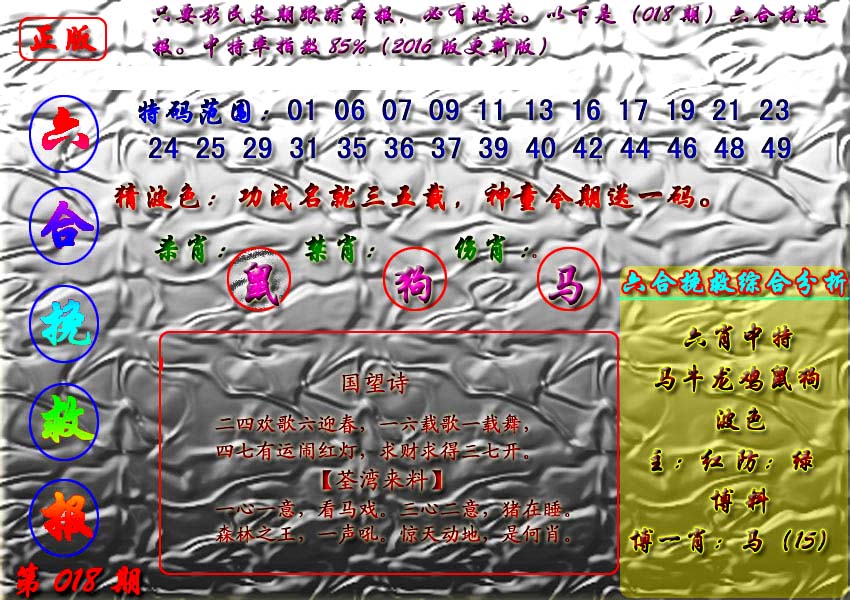 正版
只要彩民长期跟踪本报，必有收获。以下是（018期）六合挽救
报。中特率指数85%（2016版更新版）
六
合
挽
救
报
第018期
特码范围：01 06 07 09 11 13 16 17 19 21 23
24 25 29 31 35 36 37 39 40 42 44 46 48 49
猜波色：功成名就三五载，神童今期送一码。
杀肖：鼠 禁肖：狗 伤肖：马
国望诗
二四欢歌六迎春，一六载歌一载舞，
四七有运闹红灯，求财求得三七开。
【荃湾来料】
一心一意，看马戏。三心二意，猪在睡。
森林之王，一声吼。惊天动地，是何肖。
六合挽救综合分析
六肖中特
马牛龙鸡鼠狗
波色
主：红防：绿
博料
博一肖：马（15）